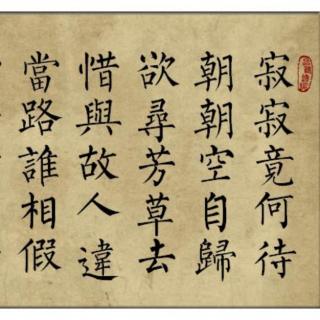 寂寂竟何待
朝朝空自歸
欲尋芳草去
惜與故人違
當路誰相假